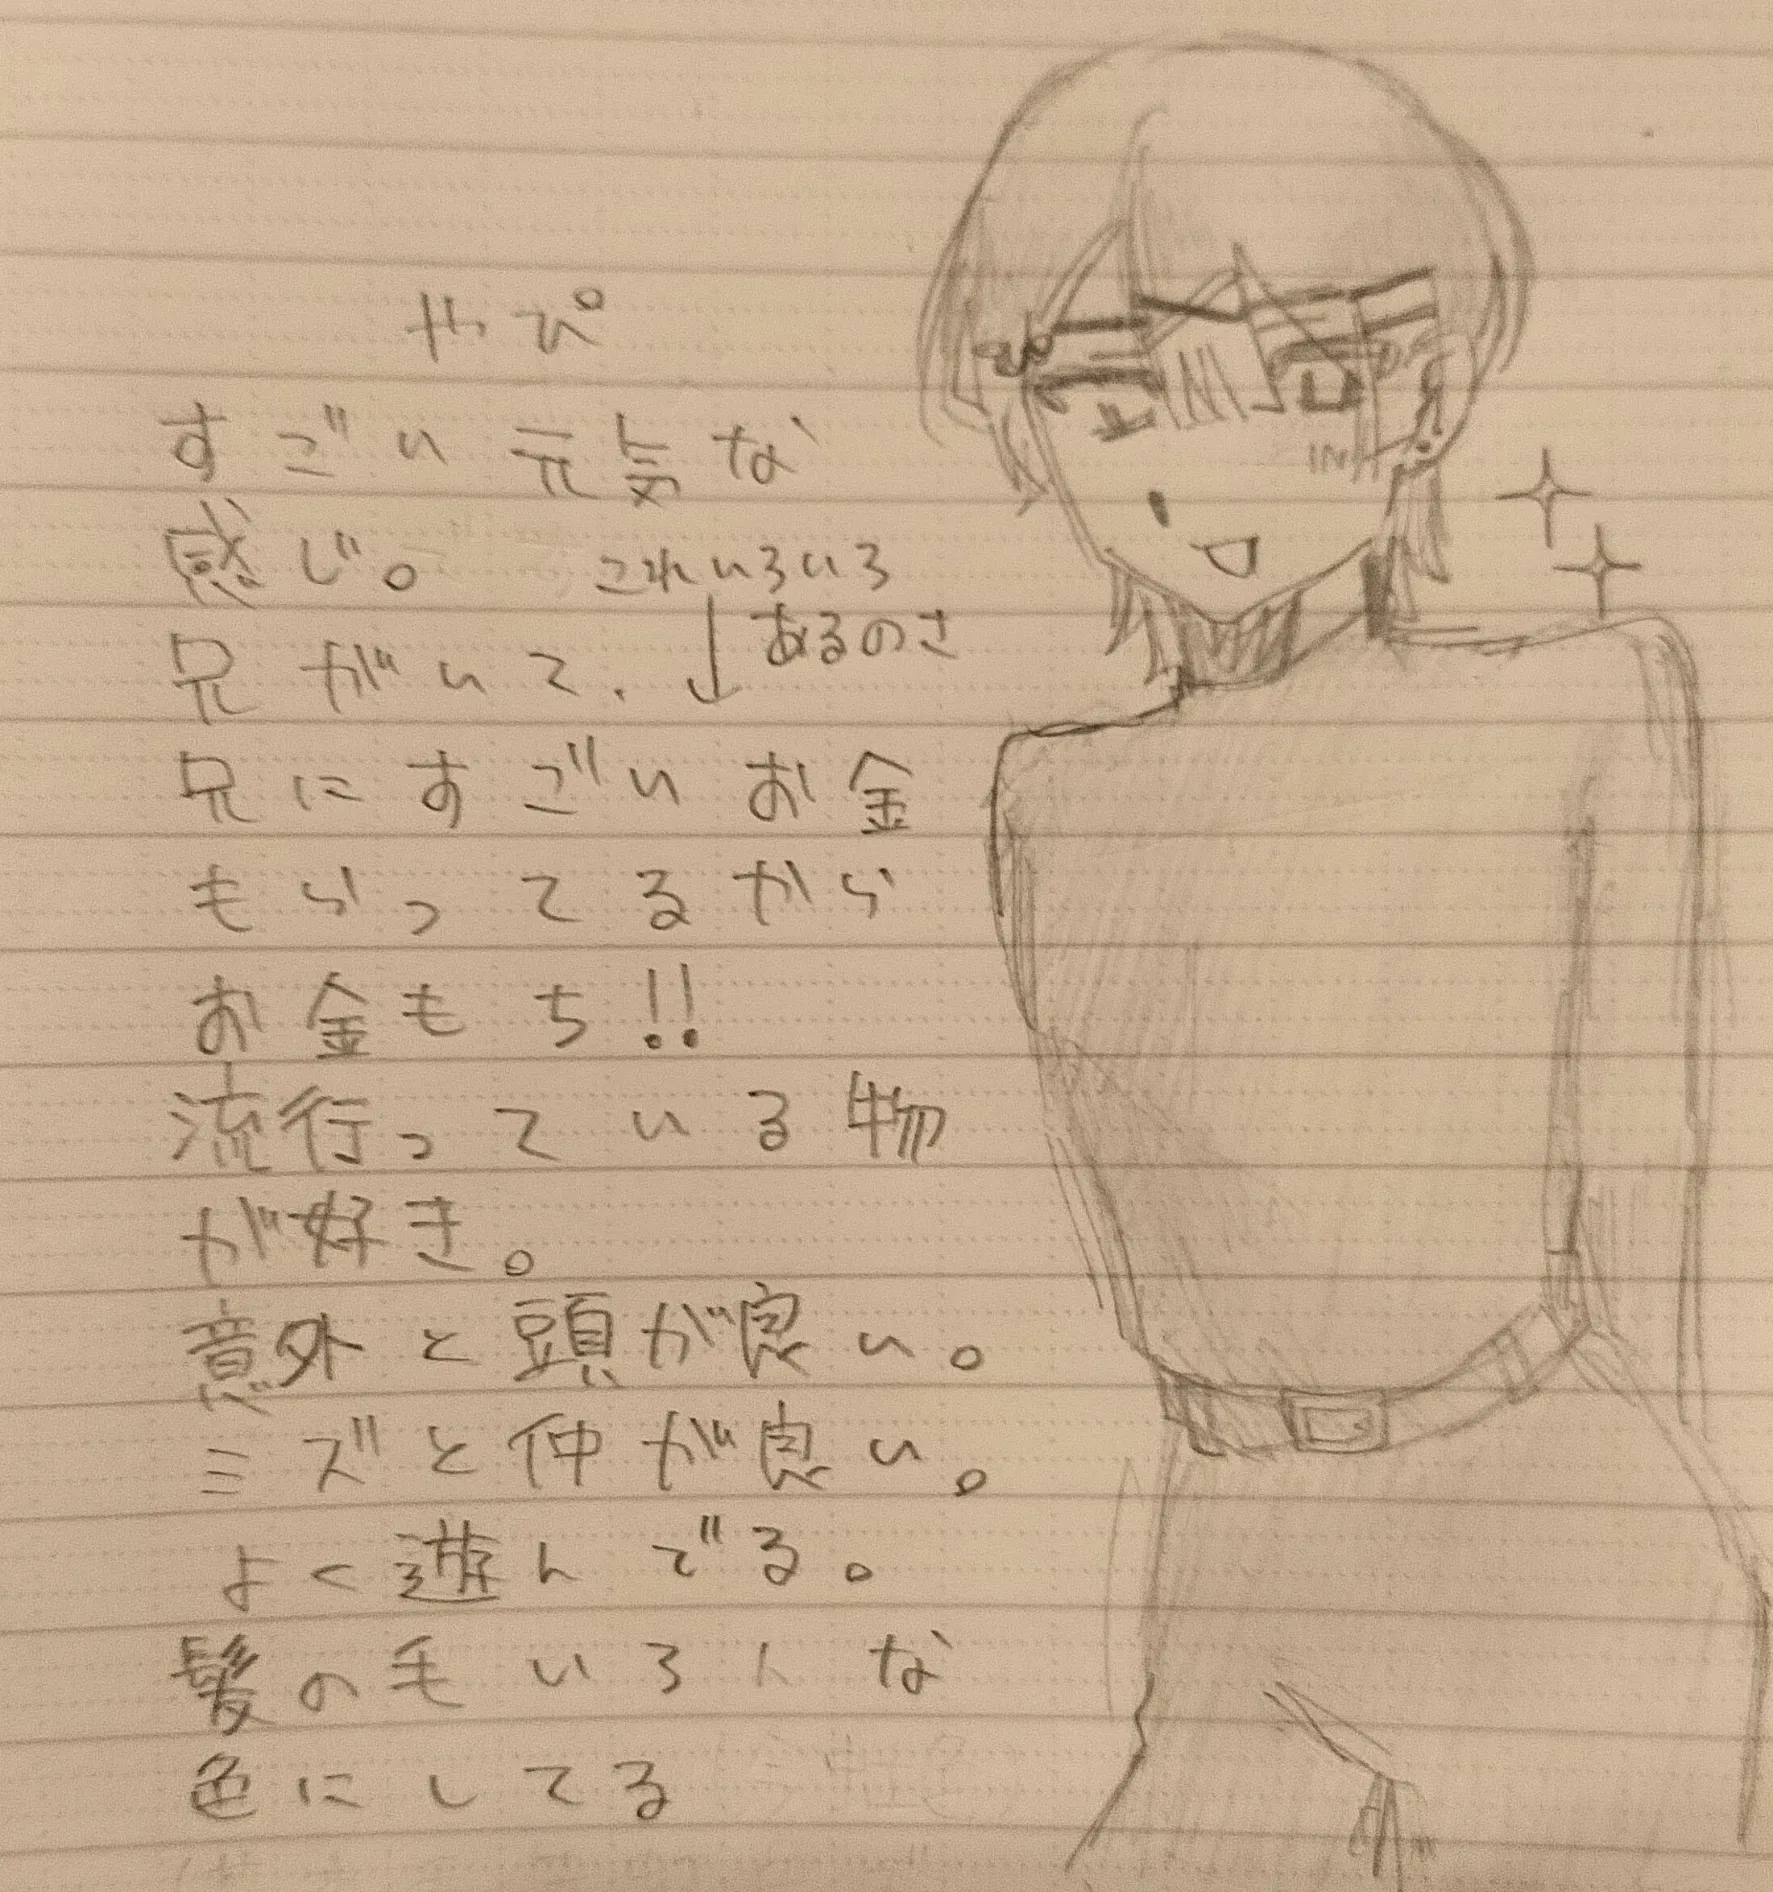 やぴ
すごい元気な
感じ。
これいろいろ
あるのさ
兄がいて、
兄にすごいお金
もらってるから
お金もち!!
流行っている物
が好き。
意外と頭が良い。
ミズと仲が良い。
よく遊んでる。
髪の毛いろんな
色にしてる